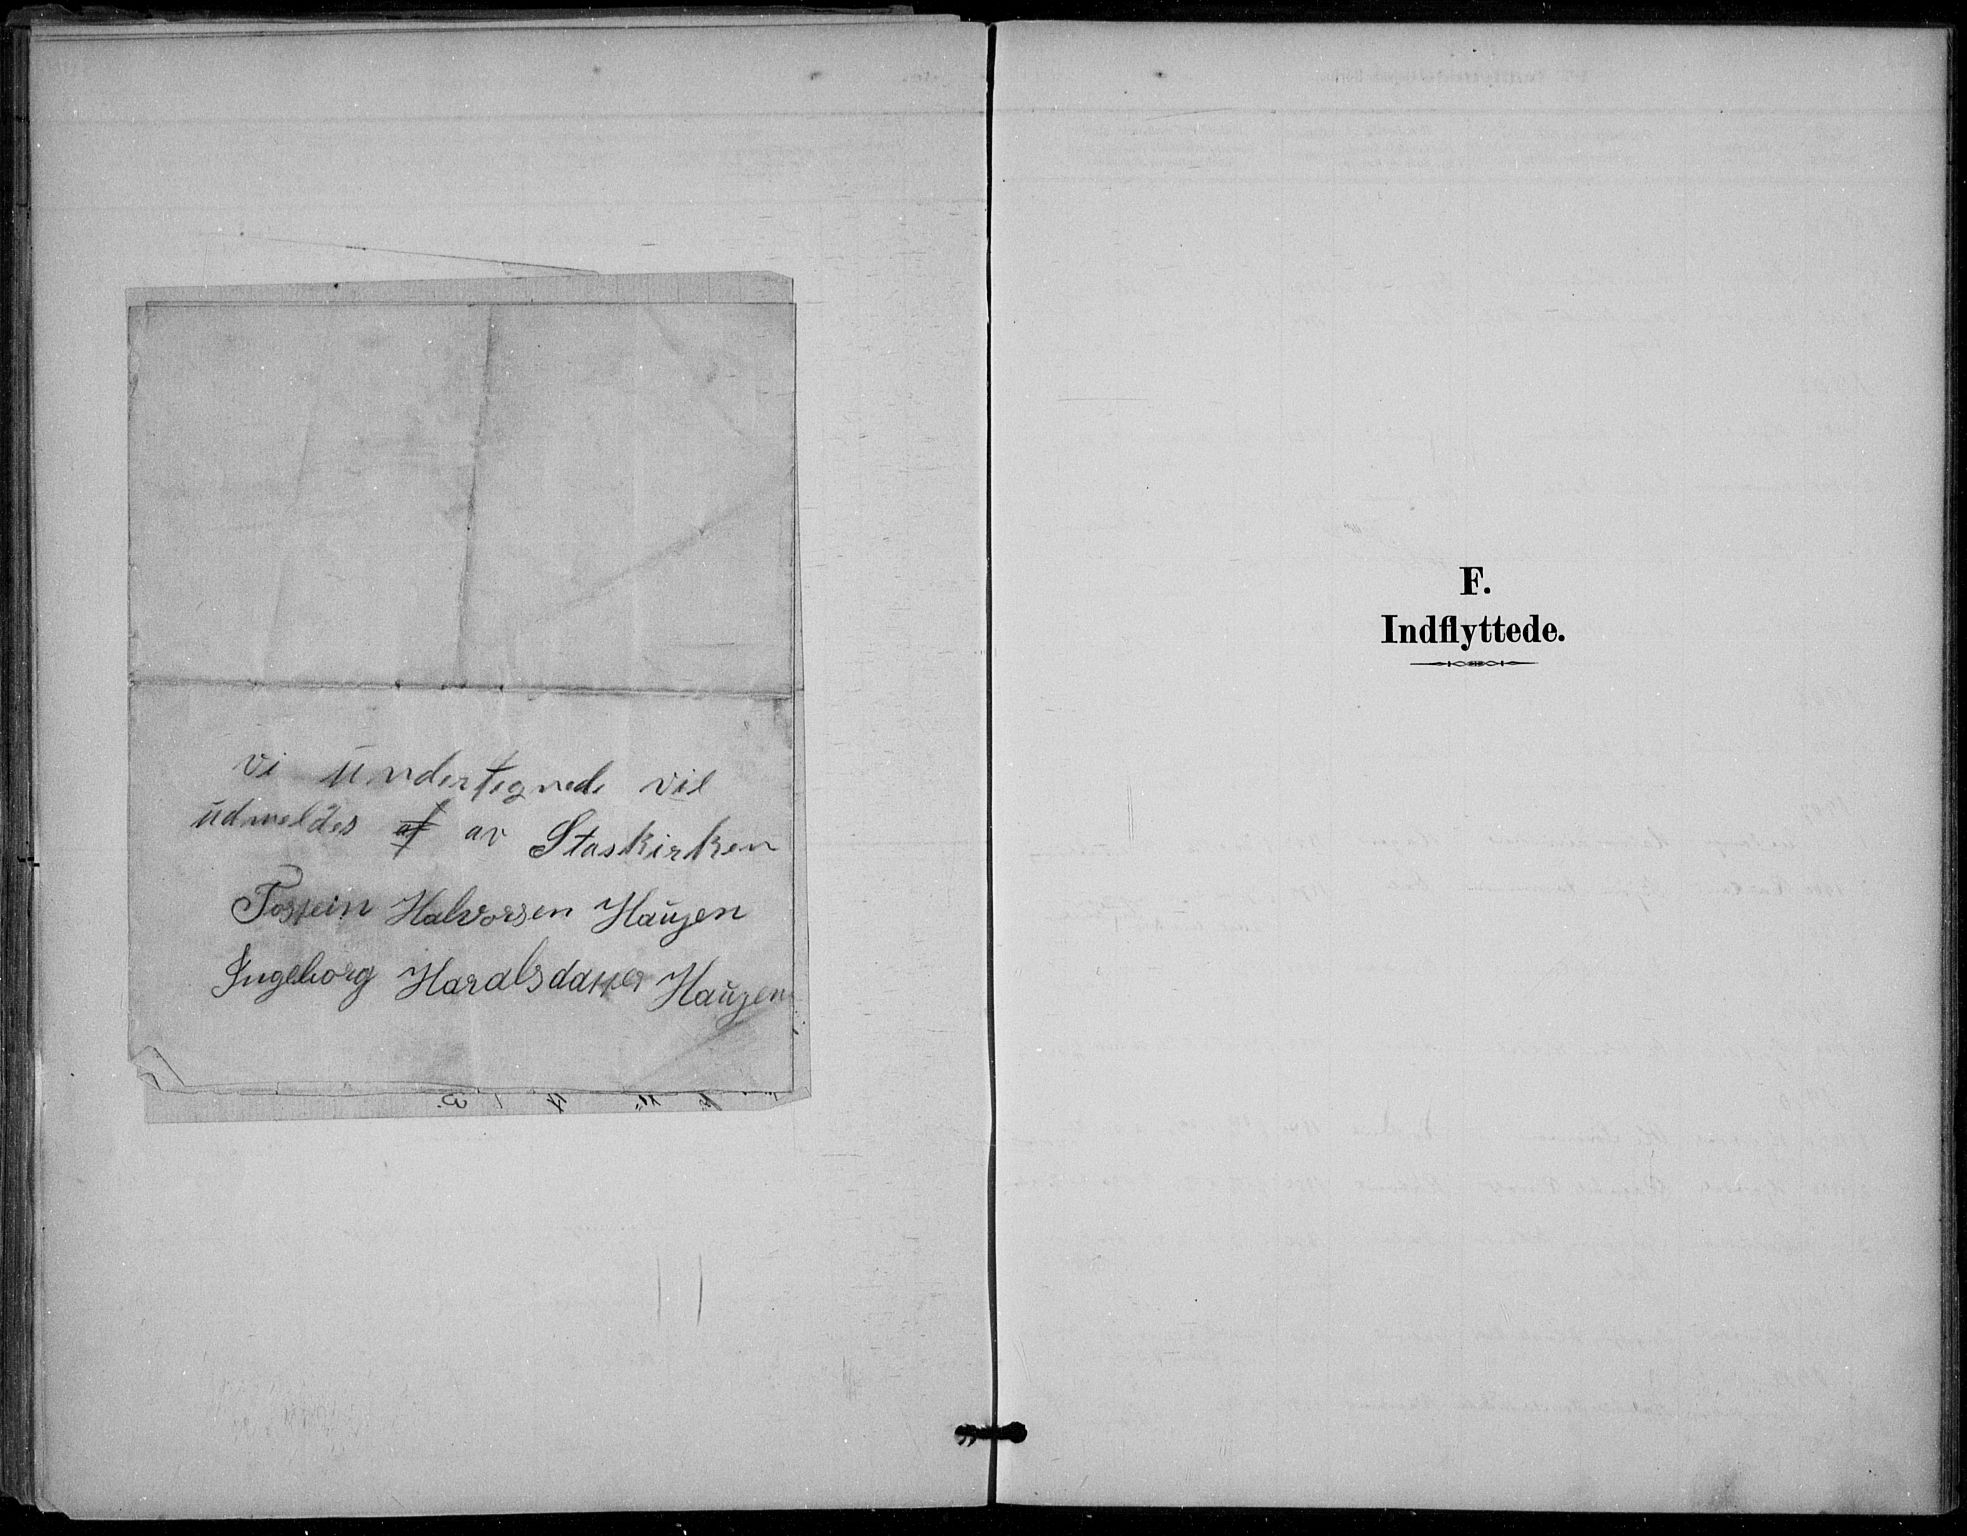 vi undertegnede vil
udmeldes af av Staskirken
Tostein Halvorsen Haugen
Ingeborg Haralsdatter Haugen
F.
Indflyttede.